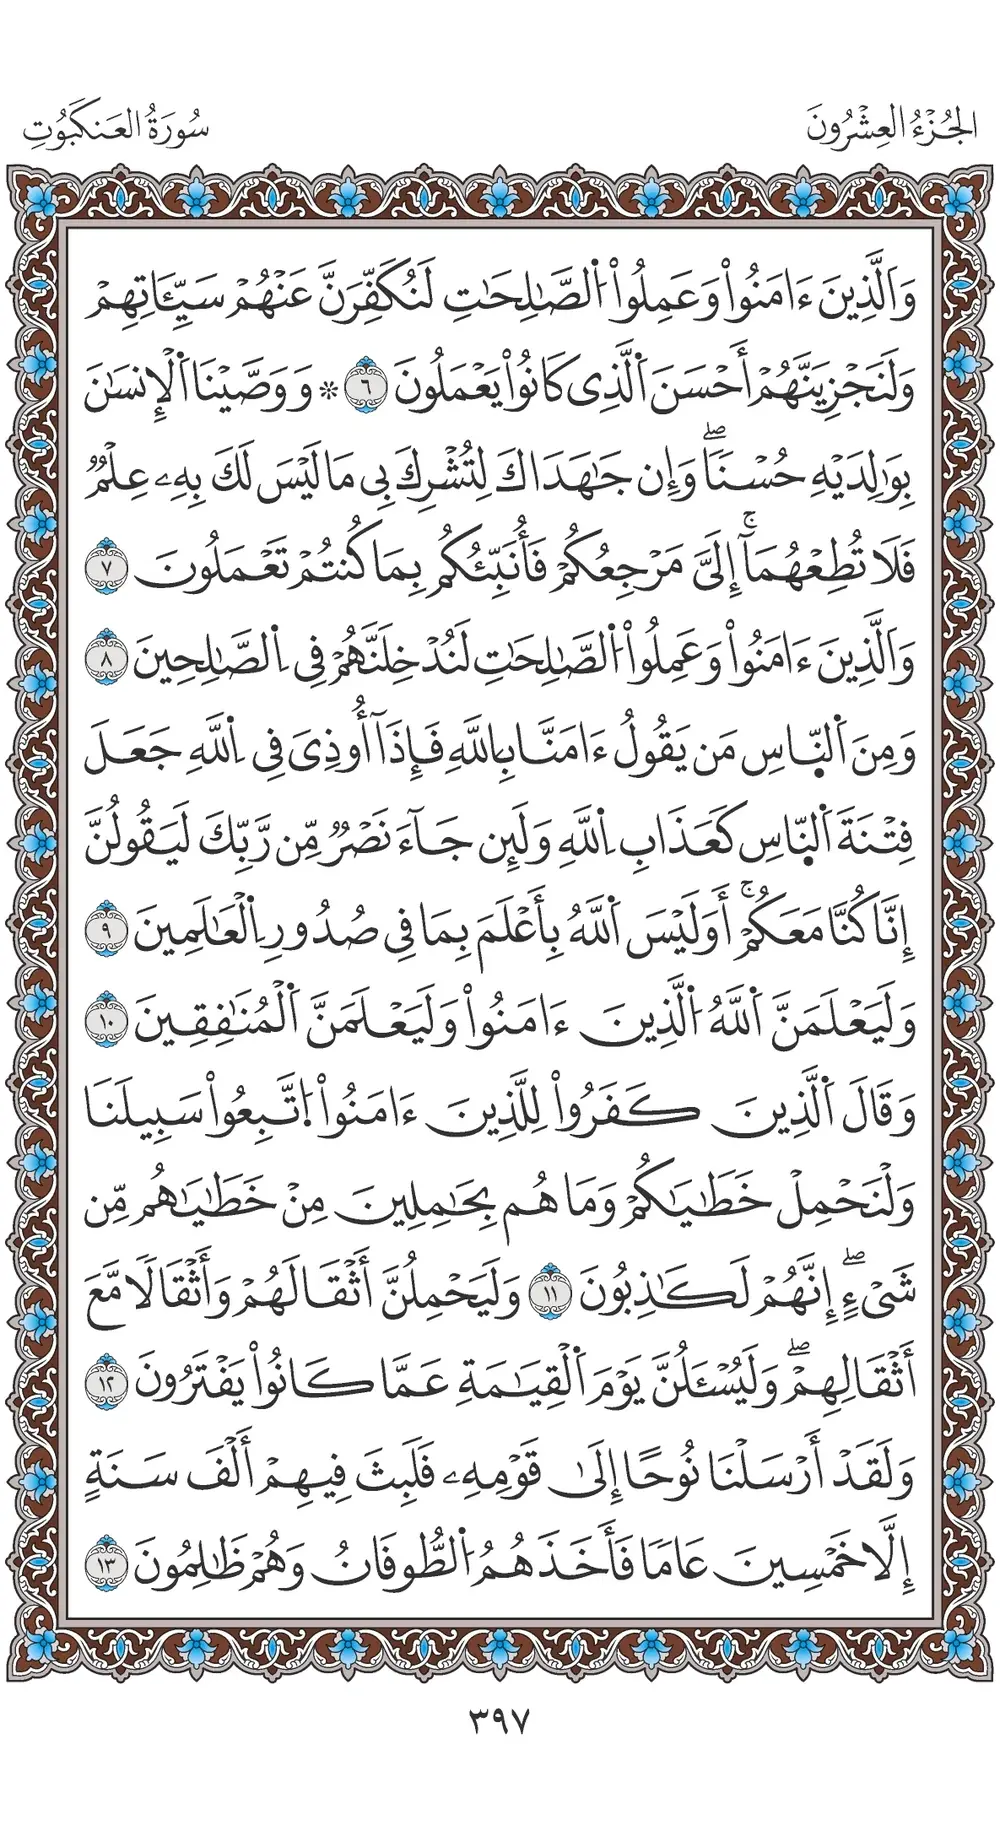 الجُزْءُ العِشْرُونَ
سُورَةُ العَنكَبُوتِ
وَالَّذِينَ ءَامَنُواْ وَعَمِلُواْ اُلصَّٰلِحَٰتِ لَنُكَفِّرَنَّ عَنْهُمْ سَيِّـَٔاتِهِمْ
وَلَنَجْزِيَنَّهُمْ أَحْسَنَ اَلَّذِى كَانُواْ يَعْمَلُونَ ٦ * وَوَصَّيْنَا اَلْإِنسَٰنَ
بِوَٰلِدَيْهِ حُسْنًاۖ وَإِن جَٰهَدَاكَ لِتُشْرِكَ بِى مَا لَيْسَ لَكَ بِهِۦ عِلْمٌ
فَلَا تُطِعْهُمَآۚ إِلَىَّ مَرْجِعُكُمْ فَأُنَبِّئُكُم بِمَا كُنتُمْ تَعْمَلُونَ ٧
وَالَّذِينَ ءَامَنُواْ وَعَمِلُواْ اُلصَّٰلِحَٰتِ لَنُدْخِلَنَّهُمْ فِى اِلصَّٰلِحِينَ ٨
وَمِنَ اَلنَّاسِ مَن يَقُولُ ءَامَنَّا بِاللَّهِ فَإِذَآ أُوذِىَ فِى اِللَّهِ جَعَلَ
فِتْنَةَ اَلنَّاسِ كَعَذَابِ اِللَّهِ وَلَئِن جَآءَ نَصْرٌ مِّن رَّبِّكَ لَيَقُولُنَّ
إِنَّا كُنَّا مَعَكُمْۚ أَوَلَيْسَ اَللَّهُ بِأَعْلَمَ بِمَا فِى صُدُورِ اِلْعَٰلَمِينَ ٩
وَلَيَعْلَمَنَّ اَللَّهُ اُلَّذِينَ ءَامَنُواْ وَلَيَعْلَمَنَّ اَلْمُنَٰفِقِينَ ١٠
وَقَالَ اَلَّذِينَ كَفَرُواْ لِلَّذِينَ ءَامَنُواْ اُتَّبِعُواْ سَبِيلَنَا
وَلْنَحْمِلْ خَطَٰيَٰكُمْ وَمَا هُم بِحَٰمِلِينَ مِنْ خَطَٰيَٰهُم مِّن
شَىْءٍۖ إِنَّهُمْ لَكَٰذِبُونَ ١١ وَلَيَحْمِلُنَّ أَثْقَالَهُمْ وَأَثْقَالًا مَّعَ
أَثْقَالِهِمْۖ وَلَيُسْـَٔلُنَّ يَوْمَ اَلْقِيَٰمَةِ عَمَّا كَانُواْ يَفْتَرُونَ ١٢
وَلَقَدْ أَرْسَلْنَا نُوحًا إِلَىٰ قَوْمِهِۦ فَلَبِثَ فِيهِمْ أَلْفَ سَنَةٍ
إِلَّا خَمْسِينَ عَامًا فَأَخَذَهُمُ اُلطُّوفَانُ وَهُمْ ظَٰلِمُونَ ١٣
٣٩٧